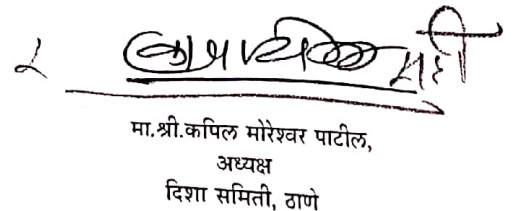 सही
मा.श्री.कपिल मोरेश्वर पाटील,
अध्यक्ष
दिशा समिती, ठाणे